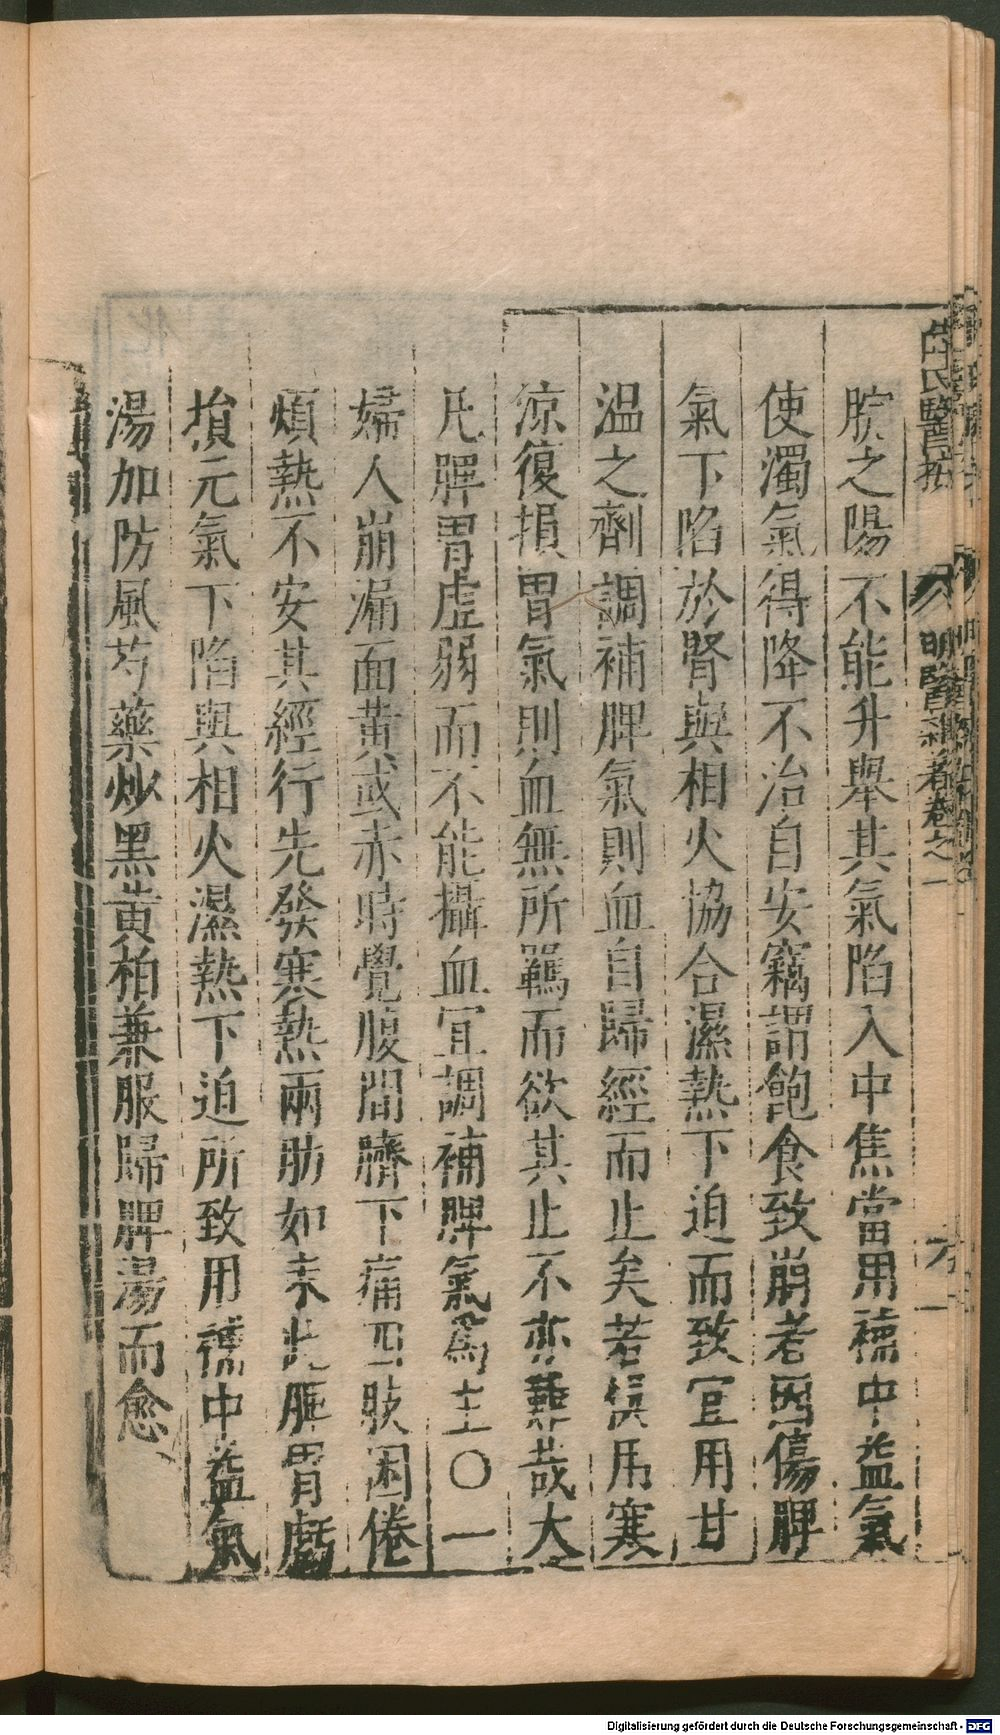 脘之陽不能升舉其氣陷入中焦當用補中益氣
使濁氣得降不治自安竊謂飽食致崩者因傷脾
氣下陷於腎與相火協合濕熱下迫而致宜用甘
温之劑調補脾氣則血自歸經而止矣若悞用寒
凉復損胃氣則血無所羈而欲其止不亦難哉大
凡脾胃虛弱而不能攝血宜調補脾氣爲主〇一
婦人崩漏面黄或赤時覺腹間臍下痛四肢困倦
煩熱不安其經行先發寒熱兩肋如束此脾胃虧
損元氣下陷與相火濕熱下迫所致用補中益氣
湯加防風芍藥炒黑黄柏兼服歸脾湯而愈
醫按
明醫雜著卷之一
Digitalisierung gefördert durch die Deutsche Forschungsgemeinschaft - DFG